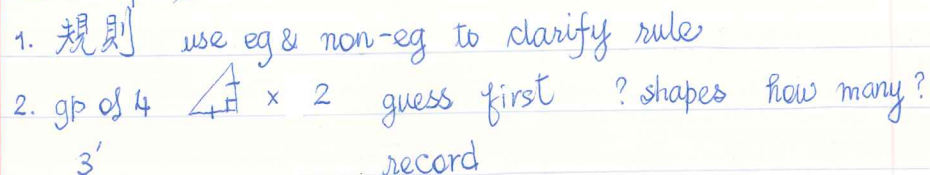 1. 規則 use eg & non-eg to clarify rule
2. gp of 4 × 2 guess first ? shapes how many?
3' record